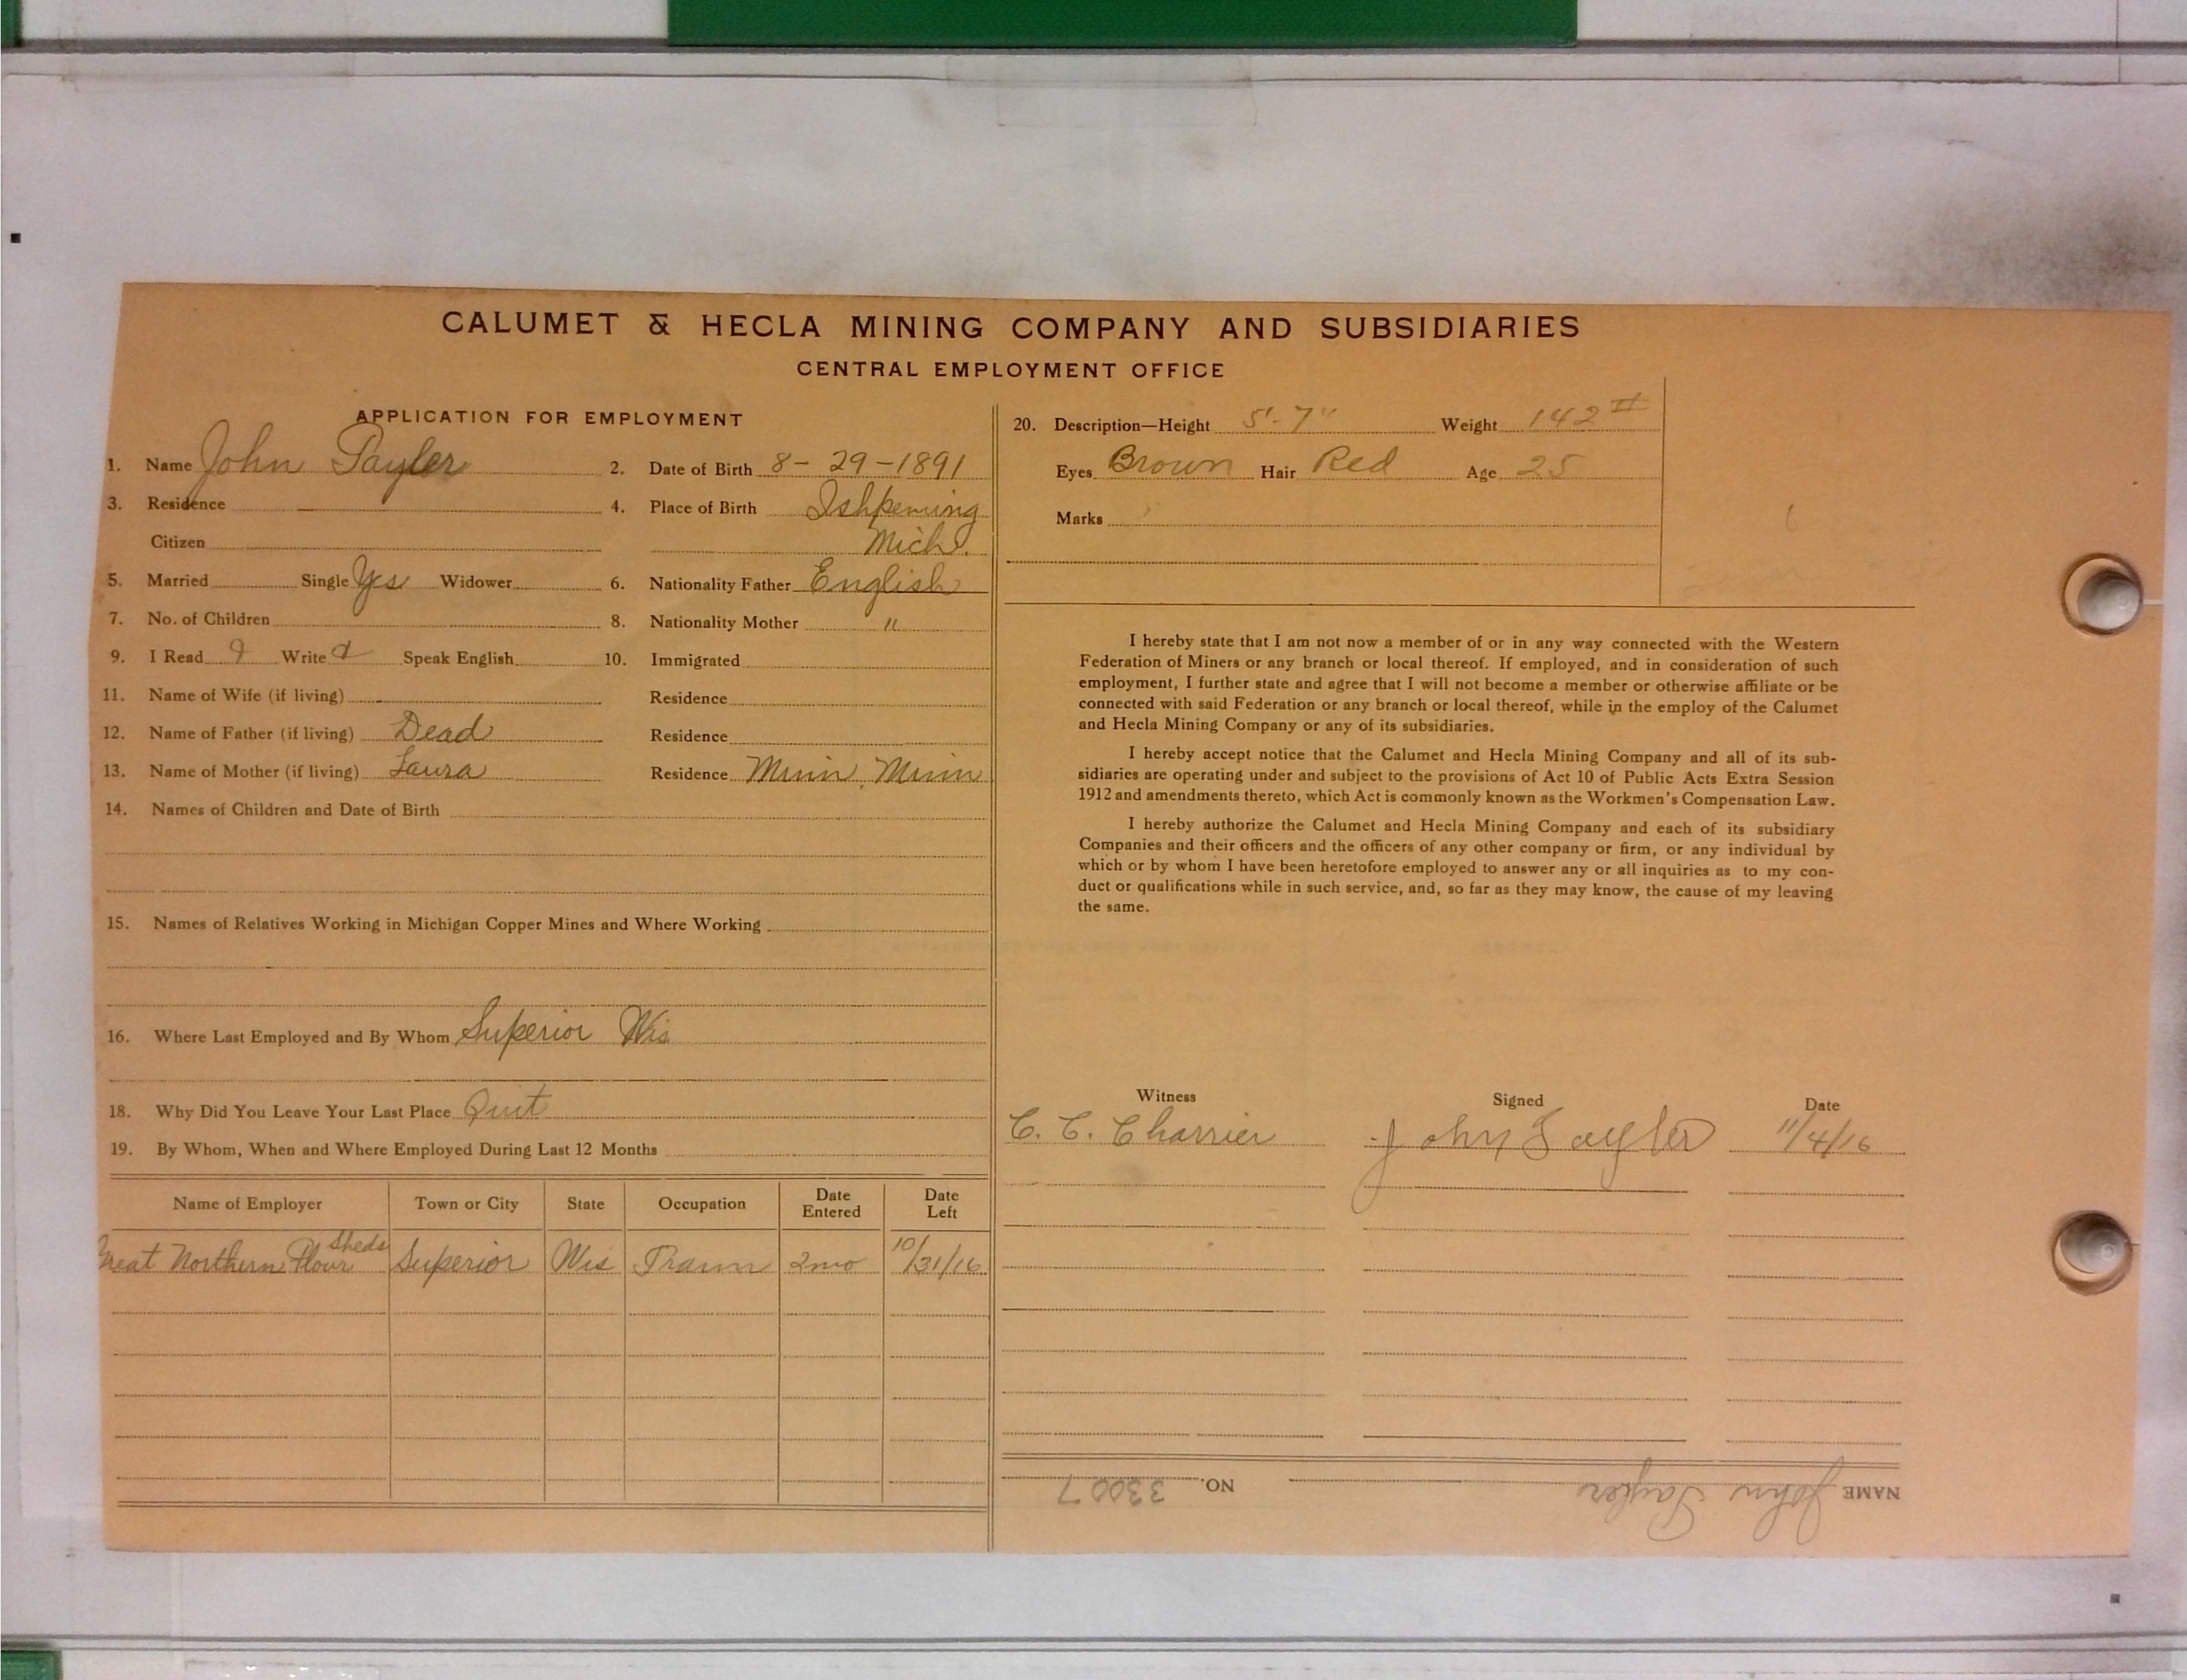 CALUMET & HECLA MINING COMPANY AND SUBSIDIARIES
CENTRAL EMPLOYMENT OFFICE
APPLICATION FOR EMPLOYMENT
1. Name John Tayler 2. Date of Birth 8-29-1891
3. Residence 4. Place of Birth Ishpeming
Citizen Mich.
5. Married Single Yes Widower 6. Nationality Father English
7. No. of Children 8. Nationality Mother "
9. I Read Write Speak English 10. Immigrated
11. Name of Wife (if living) Residence
12. Name of Father (if living) Dead Residence
13. Name of Mother (if living) Laura Residence Minn, Minn
14. Names of Children and Date of Birth
15. Names of Relatives Working in Michigan Copper Mines and Where Working
16. Where Last Employed and By Whom Superior Wis
18. Why Did You Leave Your Last Place Quit
19. By Whom, When and Where Employed During Last 12 Months
Name of Employer Town or City State Occupation Date Entered Date Left
Great Northern Flour Sheds Superior Wis 2mo 10/31/16
20. Description—Height 5'-7" Weight 142#
Eyes Brown Hair Red Age 25
Marks
I hereby state that I am not now a member of or in any way connected with the Western
Federation of Miners or any branch or local thereof. If employed, and in consideration of such
employment, I further state and agree that I will not become a member or otherwise affiliate or be
connected with said Federation or any branch or local thereof, while in the employ of the Calumet
and Hecla Mining Company or any of its subsidiaries.
I hereby accept notice that the Calumet and Hecla Mining Company and all of its sub-
sidiaries are operating under and subject to the provisions of Act 10 of Public Acts Extra Session
1912 and amendments thereto, which Act is commonly known as the Workmen's Compensation Law.
I hereby authorize the Calumet and Hecla Mining Company and each of its subsidiary
Companies and their officers and the officers of any other company or firm, or any individual by
which or by whom I have been heretofore employed to answer any or all inquiries as to my con-
duct or qualifications while in such service, and, so far as they may know, the cause of my leaving
the same.
Witness Signed Date
C. C. Charrier John Tayler 11/4/16
NAME John Tayler NO. 33007